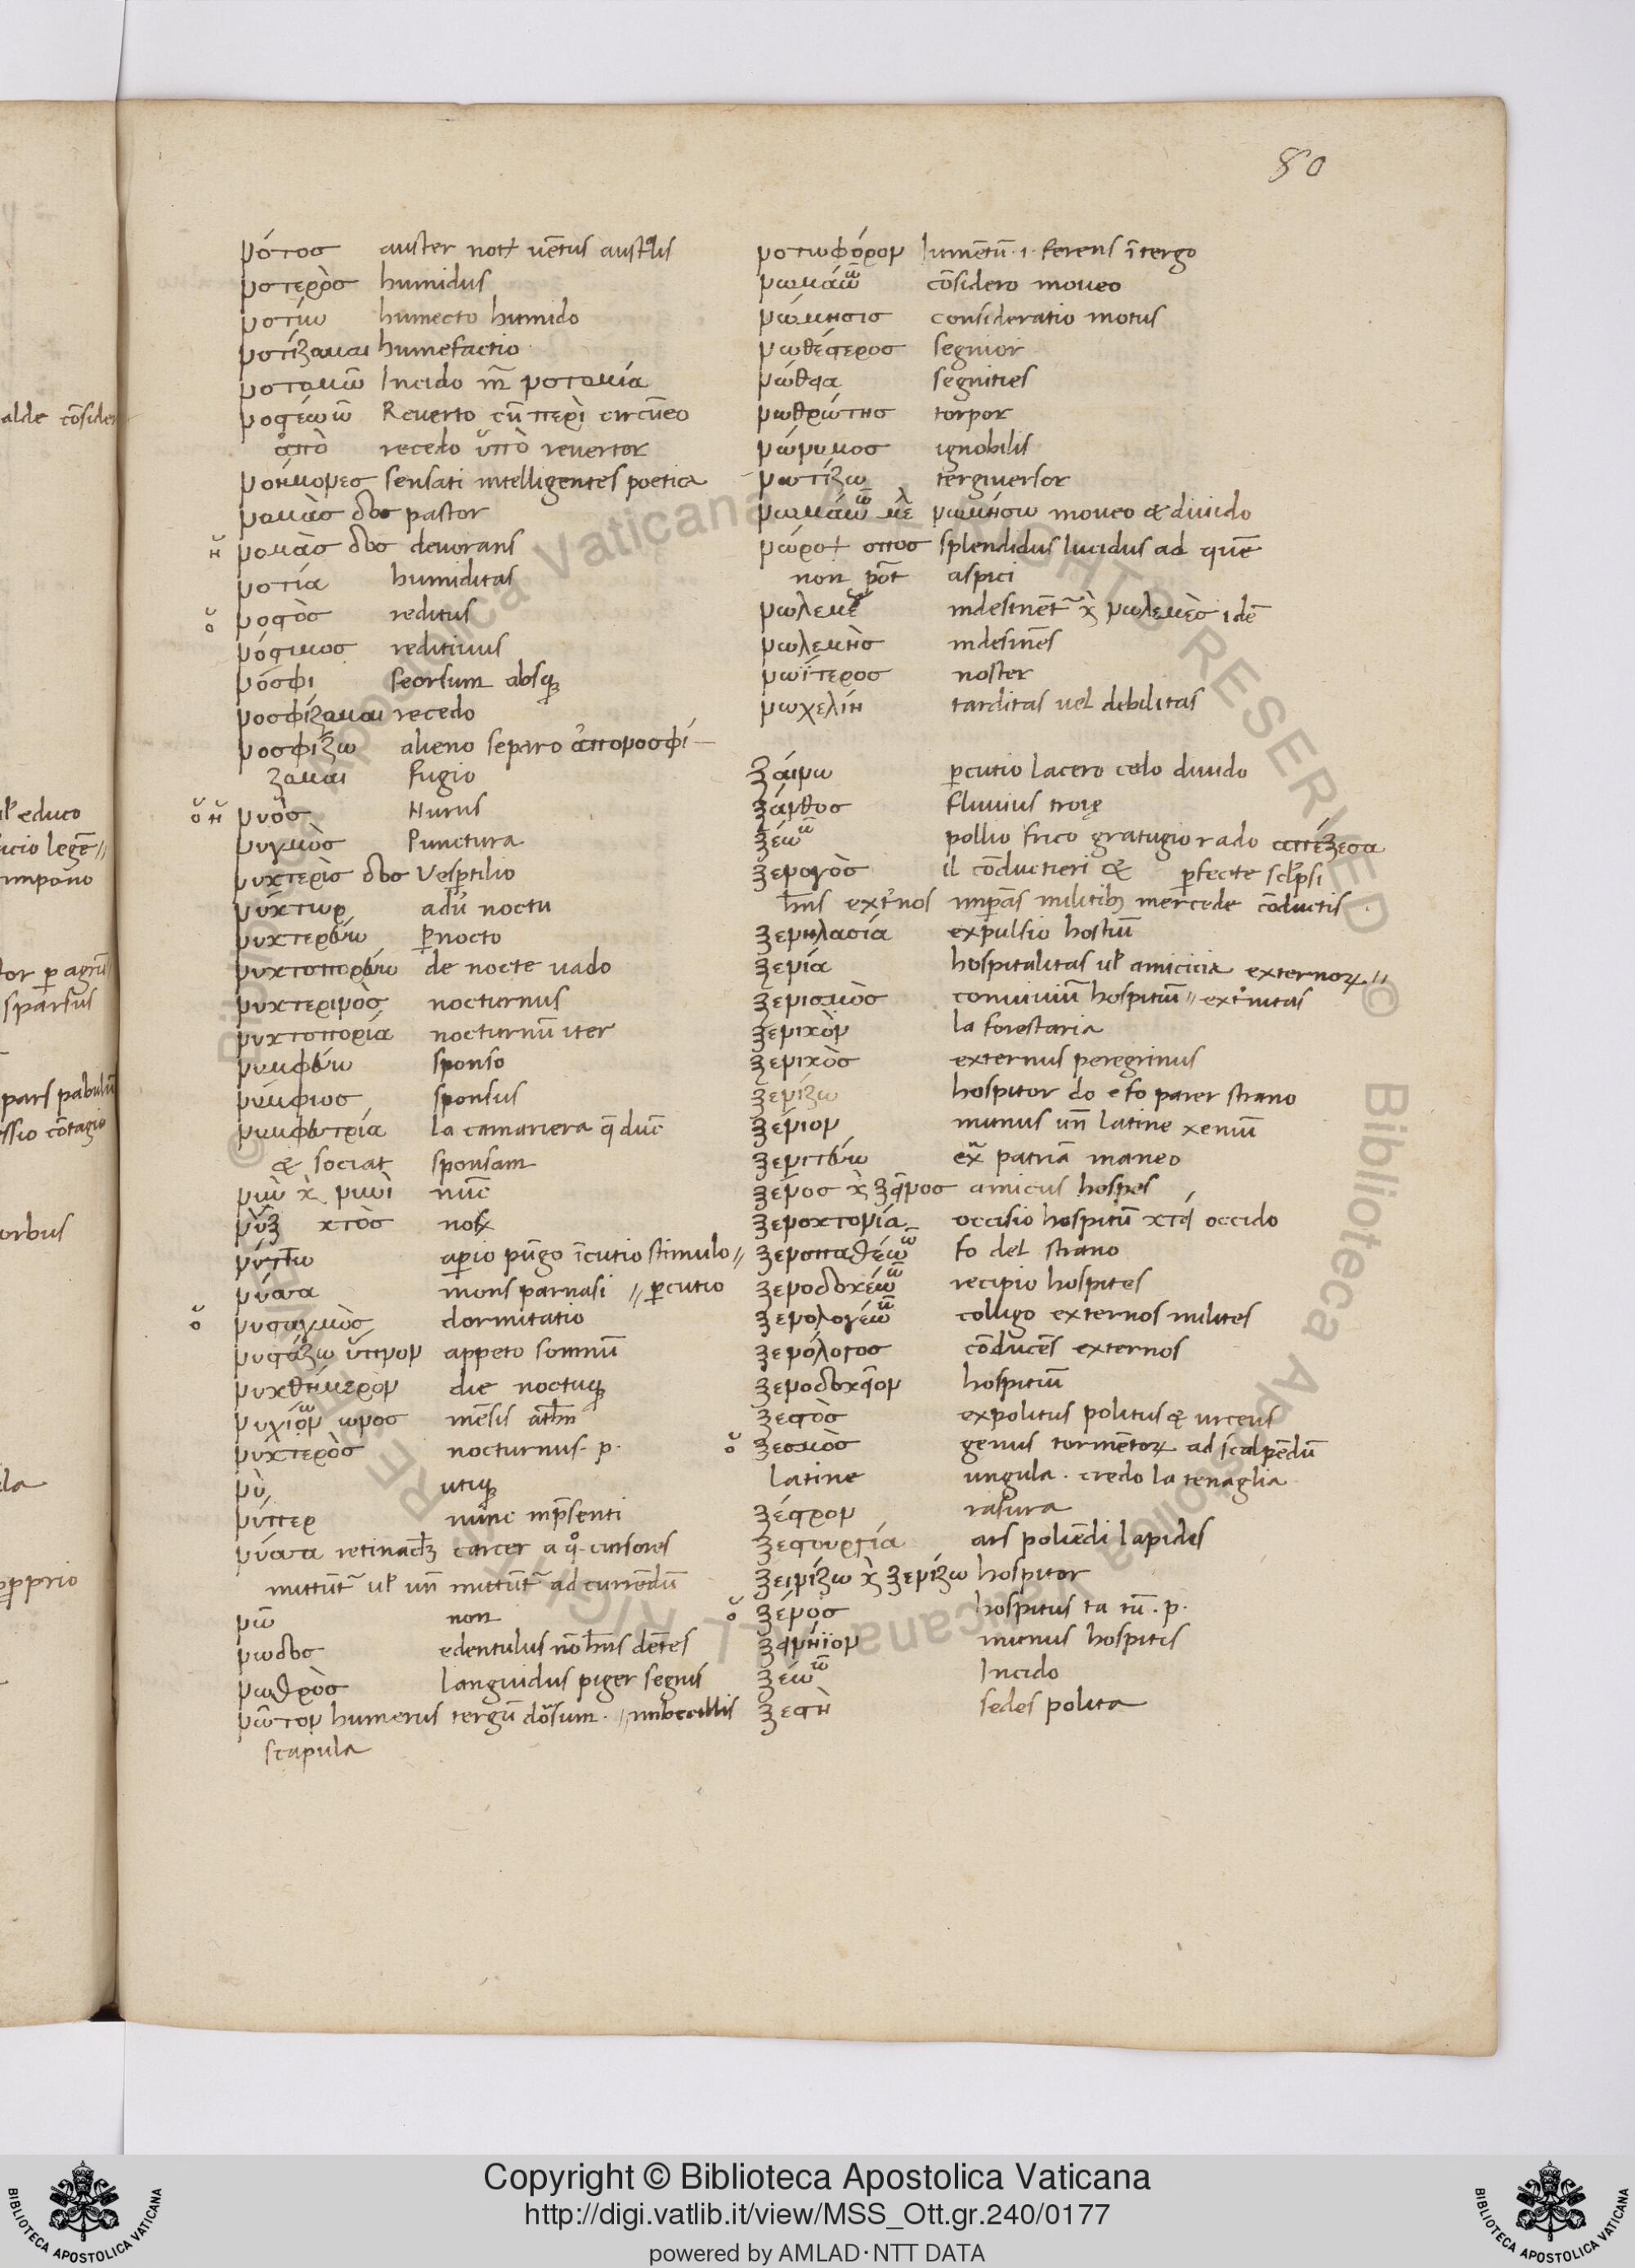 80
νότος auster not vētus austᵃlis
νοτερὸς humidus
νοτίω humecto humido
νοτίζομαι humefactio
νοτομῶ Incido m̄ νοτομία
νοστέω ῶ Reverto cū περὶ circūeo
ἀπὸ recedo ὑπὸ revertor
νοήμονες sensati intelligentes poetica
νομὰς δος pastor
ἡ νομὰς δος devorans
νοτία humiditas
ὁ νοστὸς reditus
νόστιμος reditivus
νόσφι seorsum absqꝫ
νοσφίζομαι recedo
νοσφίζω alieno separo ἀπονοσφί
ζομαι fugio
ὁ ἡ νυὸς Nurus
νυγμὸς Punctura
νυκτερὶς δος Vesp̱tilio
νύκτωρ adū noctu
νυκτερεύω p̱nocto
νυκτοπορεύω de nocte vado
νυκτερινὸς nocturnus
νυκτοπορία nocturnū iter
νυμφεύω sponso
νύμφιος sponsus
νυμφευτρία la camariera q̄ duc̄
& sociat sponsam
νυὼ κ̀ νυωὶ nūc
νὺξ κτὸς nox
νύττω ap̱io pūgo īcutio stimulo //
νύσσα mons parnasi // p̱cutio
ὁ νυσταγμὸς dormitatio
νυστάζω ὕπνον appeto somnū
νυχθήμερον die noctuqꝫ
νυχιὼν ωνος mēsis
νυκτερὸς nocturnus. p.
νὺ utiqꝫ
νύπερ nunc inp̄senti
νύσσα retinacl̄ꝫ carcer a qͦ cursores
mittūt̃ ul̓ un̄ mittūt̃ ad currēdū
νῶ non
νωδος edentulus nō hn̄s dētes
νωθρὸς languidus piger segnis
νῶτον humerus tergū dorsum. // imbecillis
scapula
νοτωφόρον Iumētū .i. ferens ī tergo
νωμάω ῶ cōsidero moveo
νώμησις consideratio motus
νωθέστερος segnior
νώθεια segnities
νωθρώτης torpor
νώνυμος ignobilis
νωτίζω tergiversor
νωμάω ῶ νωμήσω moveo & divido
νώροψ οπος splendidus lucidus ad quē
non pōt aspici
νωλεμέ indesinēt̃ κ̀ νωλεμὲς idē
νωλεμὴς indesinēs
νωΐτερος noster
νωχελίη tarditas vel debilitas
ξαίνω p̱cutio lacero colo divido
ξάνθος fluvius troię
ξέω ῶ pollio frico gratugio rado ἀπέξεσα
ξεναγὸς il cōductieri & p̱fecte sclpsi
hn̄s ext̓nos imp̱ās militibꝫ mercede cōductis
ξενηλασία expulsio hostiū
ξενία hospitalitas ul̓ amicicia externoꝝ //
ξενισμὸς conviviū hospitiū // ext̓nitas
ξενικὸν la forestaria
ξενικὸς externus peregrinus
ξενίζω hospitor do e fo parer strano
ξένιον munus un̄ latine xeniū
ξενιτεύω ex̄ patriā maneo
ξένος κ̀ ξεῖνος amicus hospes
ξενοκτονία occisio hospitū κτεί occido
ξενοπαθέω ῶ fo del strano
ξενοδοκέω ῶ recipio hospites
ξενολογέω ῶ colligo externos milites
ξενόλογος cōducēs externos
ξενοδοκεῖον hospitiū
ξεστὸς expolitus politus & urceus
ὁ ξεσμὸς genus tormētoꝝ ad scalpēdū
latine ungula. credo la tenaglia
ξέστρον rasura
ξεστουργία ars poliēdi lapides
ξεινίζω κ̀ ξενίζω hospitor
ὁ ξένος hospitus ta tū. p.
ξεινήϊον munus hospitis
ξέω ῶ Incido
ξεστὴ sedes polita
alde cōsider
ul̓ educo
icio legē //
impono
tor p̱ agrū
sparsus
pars pabulū
ssio cōtagio
orbus
p̱prio
Copyright © Biblioteca Apostolica Vaticana
http://digi.vatlib.it/view/MSS_Ott.gr.240/0177
powered by AMLAD·NTT DATA
BIBLIOTECA APOSTOLICA VATICANA
BIBLIOTECA APOSTOLICA VATICANA